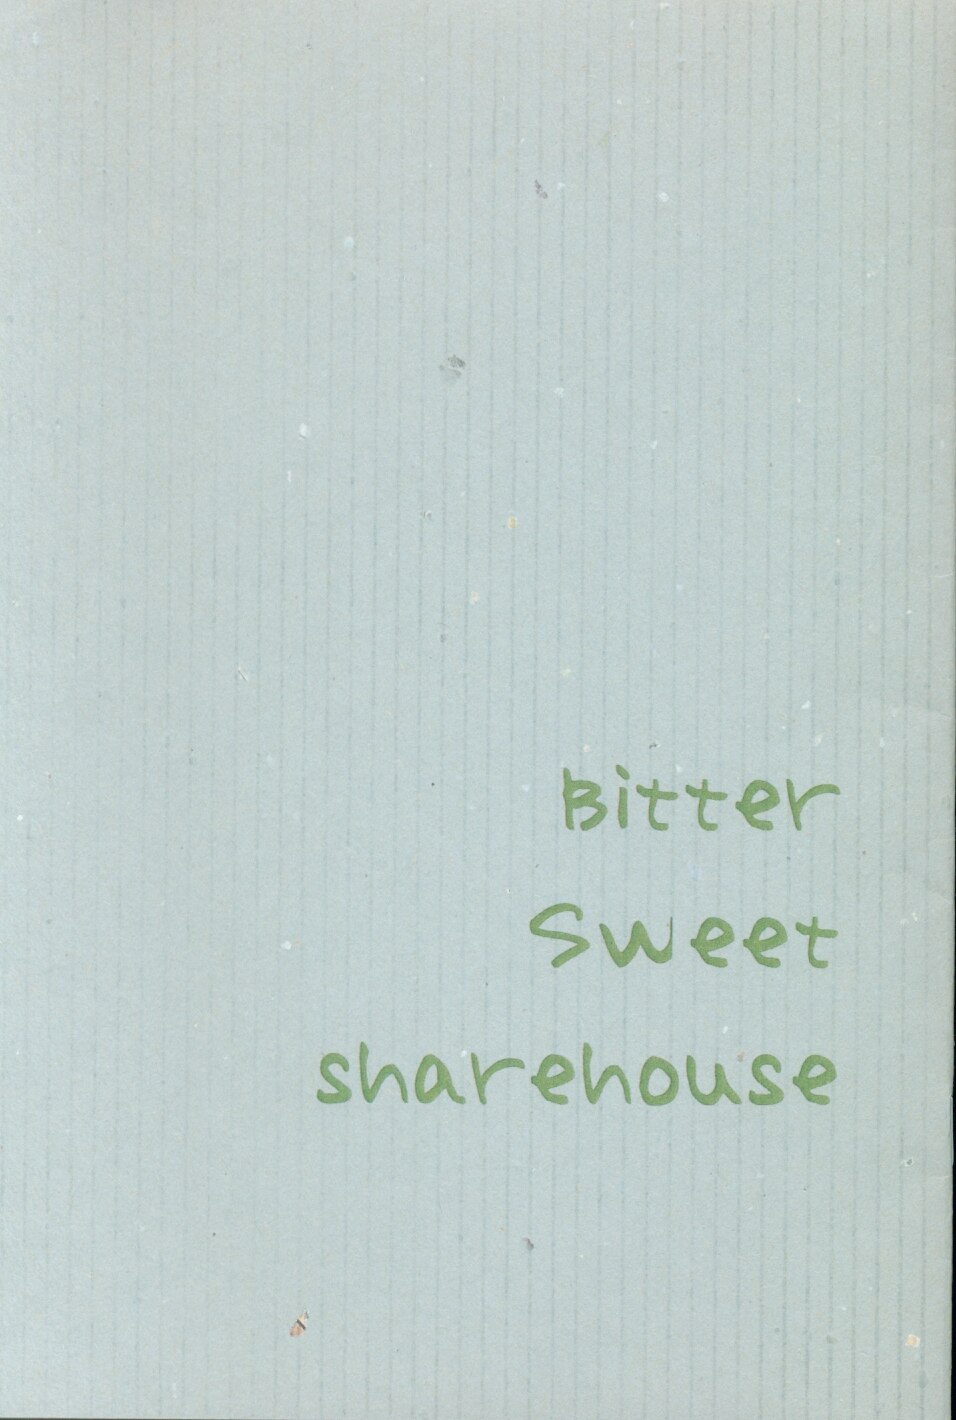 Bitter
Sweet
sharehouse